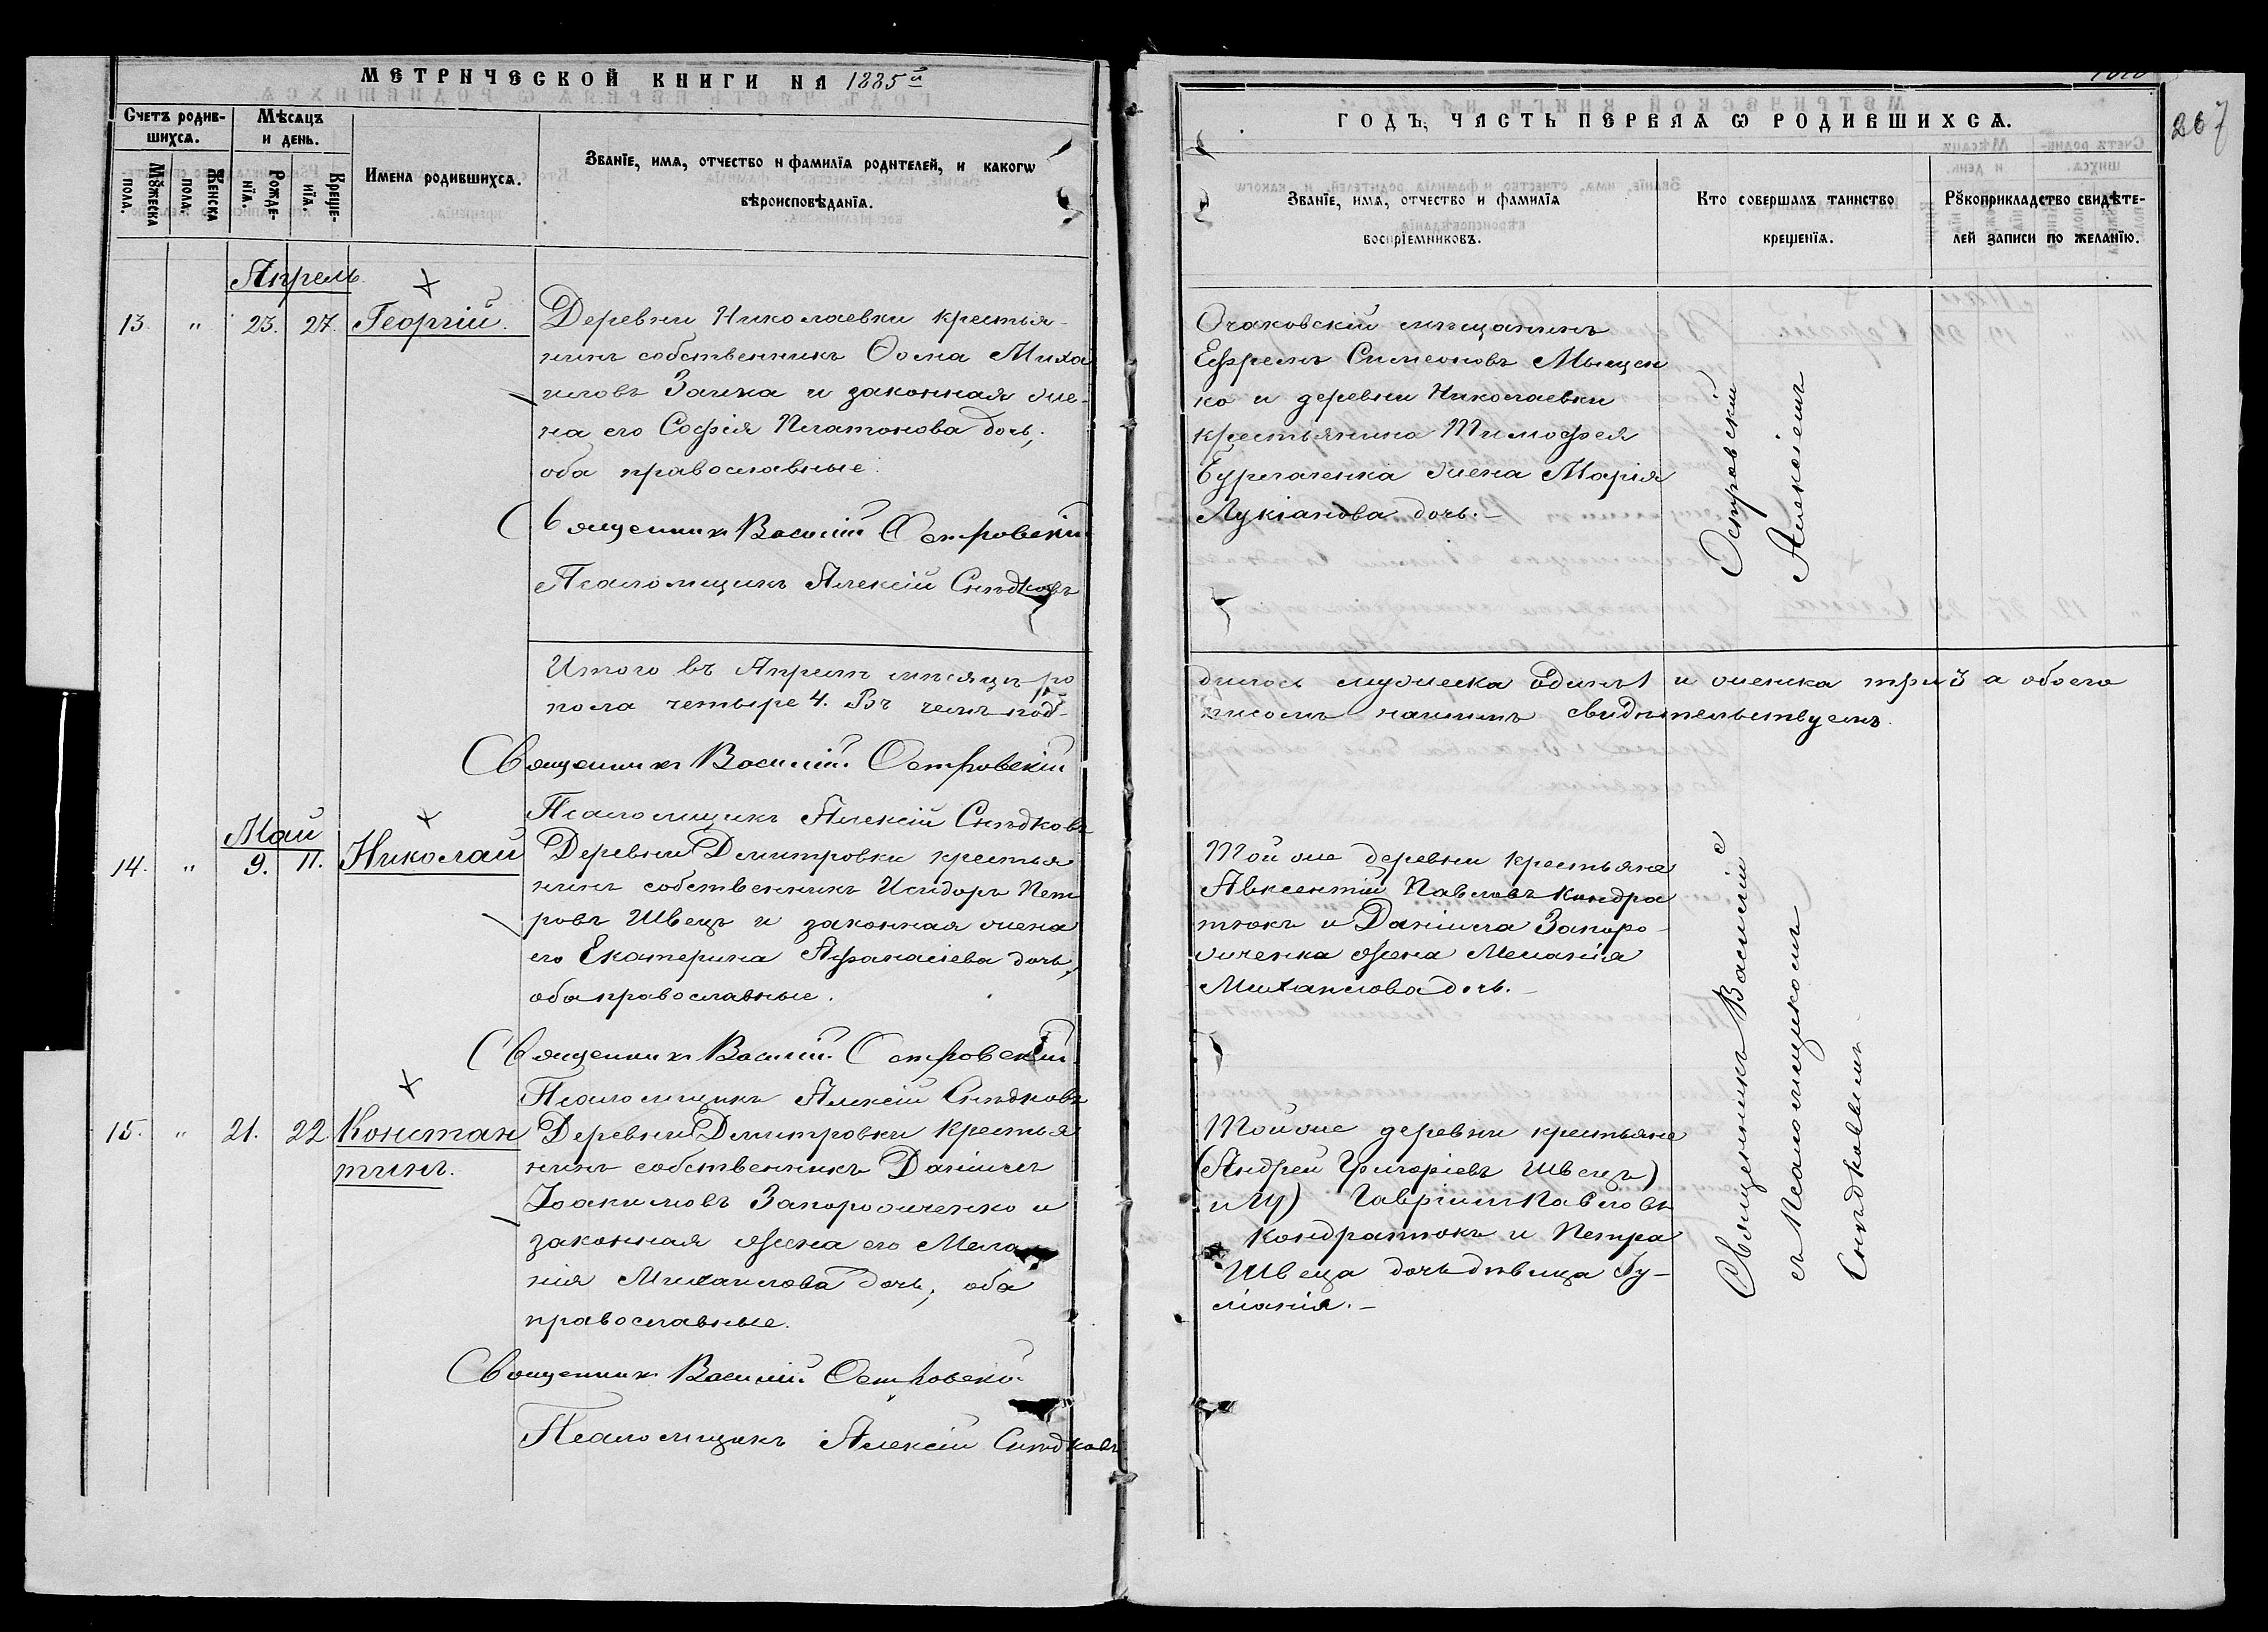 МЕТРИЧЕСКОЙ КНИГИ НА 1885й
Счетъ родив-
шихся.
Мѣсяцъ
и день.
Мꙋжеска
пола.
Женска
пола.
Рожде-
нїя.
Креще-
нїя.
Имена родившихся.
Званїе, имя, отчество и фамилїя родителей, и какогѡ
вѣроисповѣданїя.
Апрель.
13. " 23. 27. Георгій.
Деревни Николаевки крестья-
нинъ собственникъ Ѳома Миха
иловъ Заика и законная же-
на его Софія Платонова дочь;
оба православные.
Священникъ Василій Островскій
Псаломщикъ Алексій Снѣдковъ
Итого въ Апрелѣ мѣсяцѣ ро
пола четыре 4. Въ чемъ под-
Священникъ Василій Островскій
Псаломщикъ Алексій Снѣдковъ
Май
14. " 9. 11. Николай
Деревни Дмитровки крестья
нинъ собственникъ Исидоръ Пет
ровъ Швецъ и законная жена
его Екатерина Афанасіева дочь,
оба православные.
Священникъ Василій Островскій.
Псаломщикъ Алексій Снѣдковъ
15. " 21. 22. Констан
тинъ.
Деревни Дмитровки крестья
нинъ собственникъ Даніилъ
Іоакимовъ Запорожченко и
законная жена его Мела
нія Михаилова дочь, оба
православные.
Священникъ Василій Островскій
Псаломщикъ Алексій Снѣдковъ
ГОДЪ, ЧАСТЬ ПЕРВАЯ Ѡ РОДИВШИХСЯ.
267
Званїе, имя, отчество и фамилїя
воспрїемниковъ.
Кто совершалъ таинство
крещенїя.
Рꙋкоприкладство свидѣте-
лей записи по желанїю.
Очаковскій мѣщанинъ
Ефремъ Симеоновъ Мыцен
ко и деревни Николаевки
крестьянина Тимофея
Бурлаченка жена Марія
Лукіанова дочь.-
дилось мужеска одинъ 1 и женска три 3 а обоего
писомъ нашимъ свидѣтельствуемъ.
Той же деревни крестьяне
Авксентій Павловъ Кондра
тюкъ и Даніила Запоро-
жченка жена Меланія
Михаилова дочь.-
Той же деревни крестьяне
(Андрей Григоріевъ Швецъ)
Гавріилъ Павловъ
Кондратюкъ и Петра
Швеца дочь дѣвица Іу-
ліанія.-
Священникъ Василій
Островскій
съ Псаломщикомъ
Алексіемъ
Снѣдковымъ